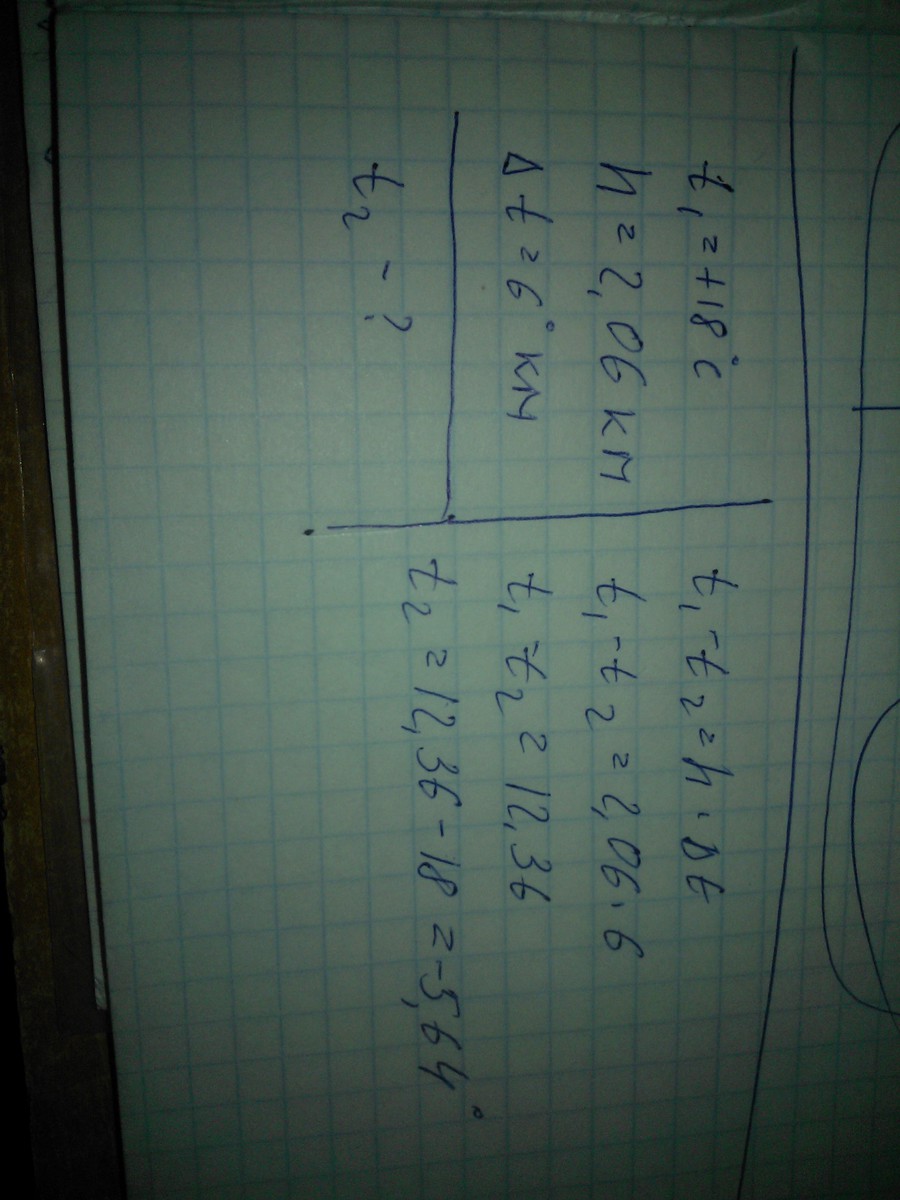 t₁ = +18°C
h = 2,06 км
Δt = 6° км
t₂ - ?
t₁ - t₂ = h · Δt
t₁ - t₂ = 2,06 · 6
t₁ - t₂ = 12,36
t₂ = 12,36 - 18 = -5,64°